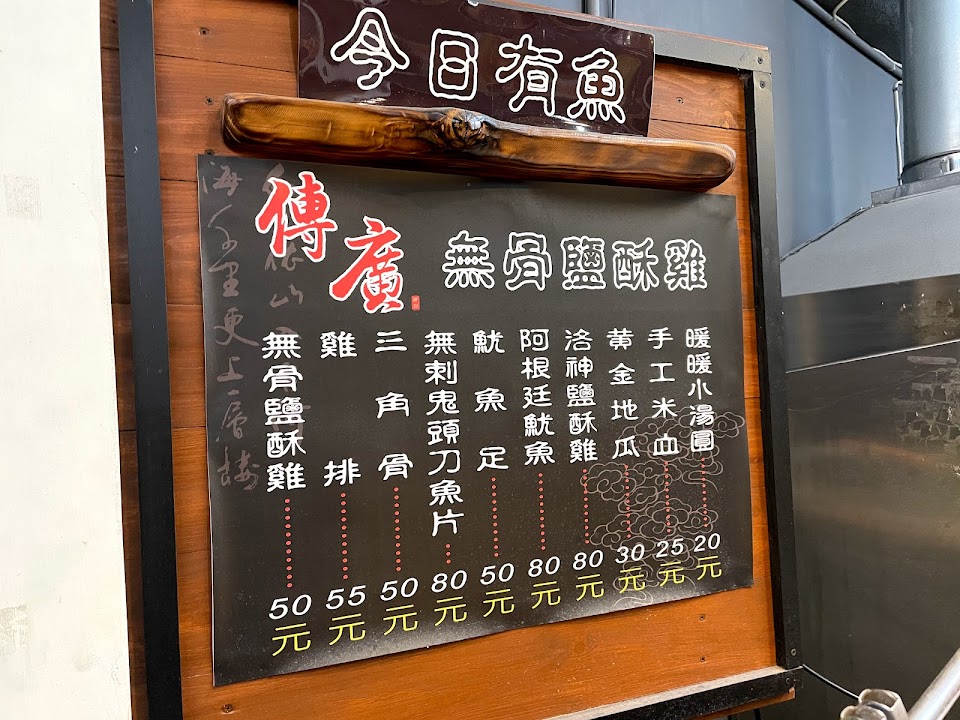 今日有魚
傳廣
無骨鹽酥雞
無骨鹽酥雞 50元
雞排 55元
三角骨 50元
無刺鬼頭刀魚片 80元
魷魚足 50元
阿根廷魷魚 80元
洛神鹽酥雞 80元
黃金地瓜 30元
手工米血 25元
暖暖小湯圓 20元
更上一層樓